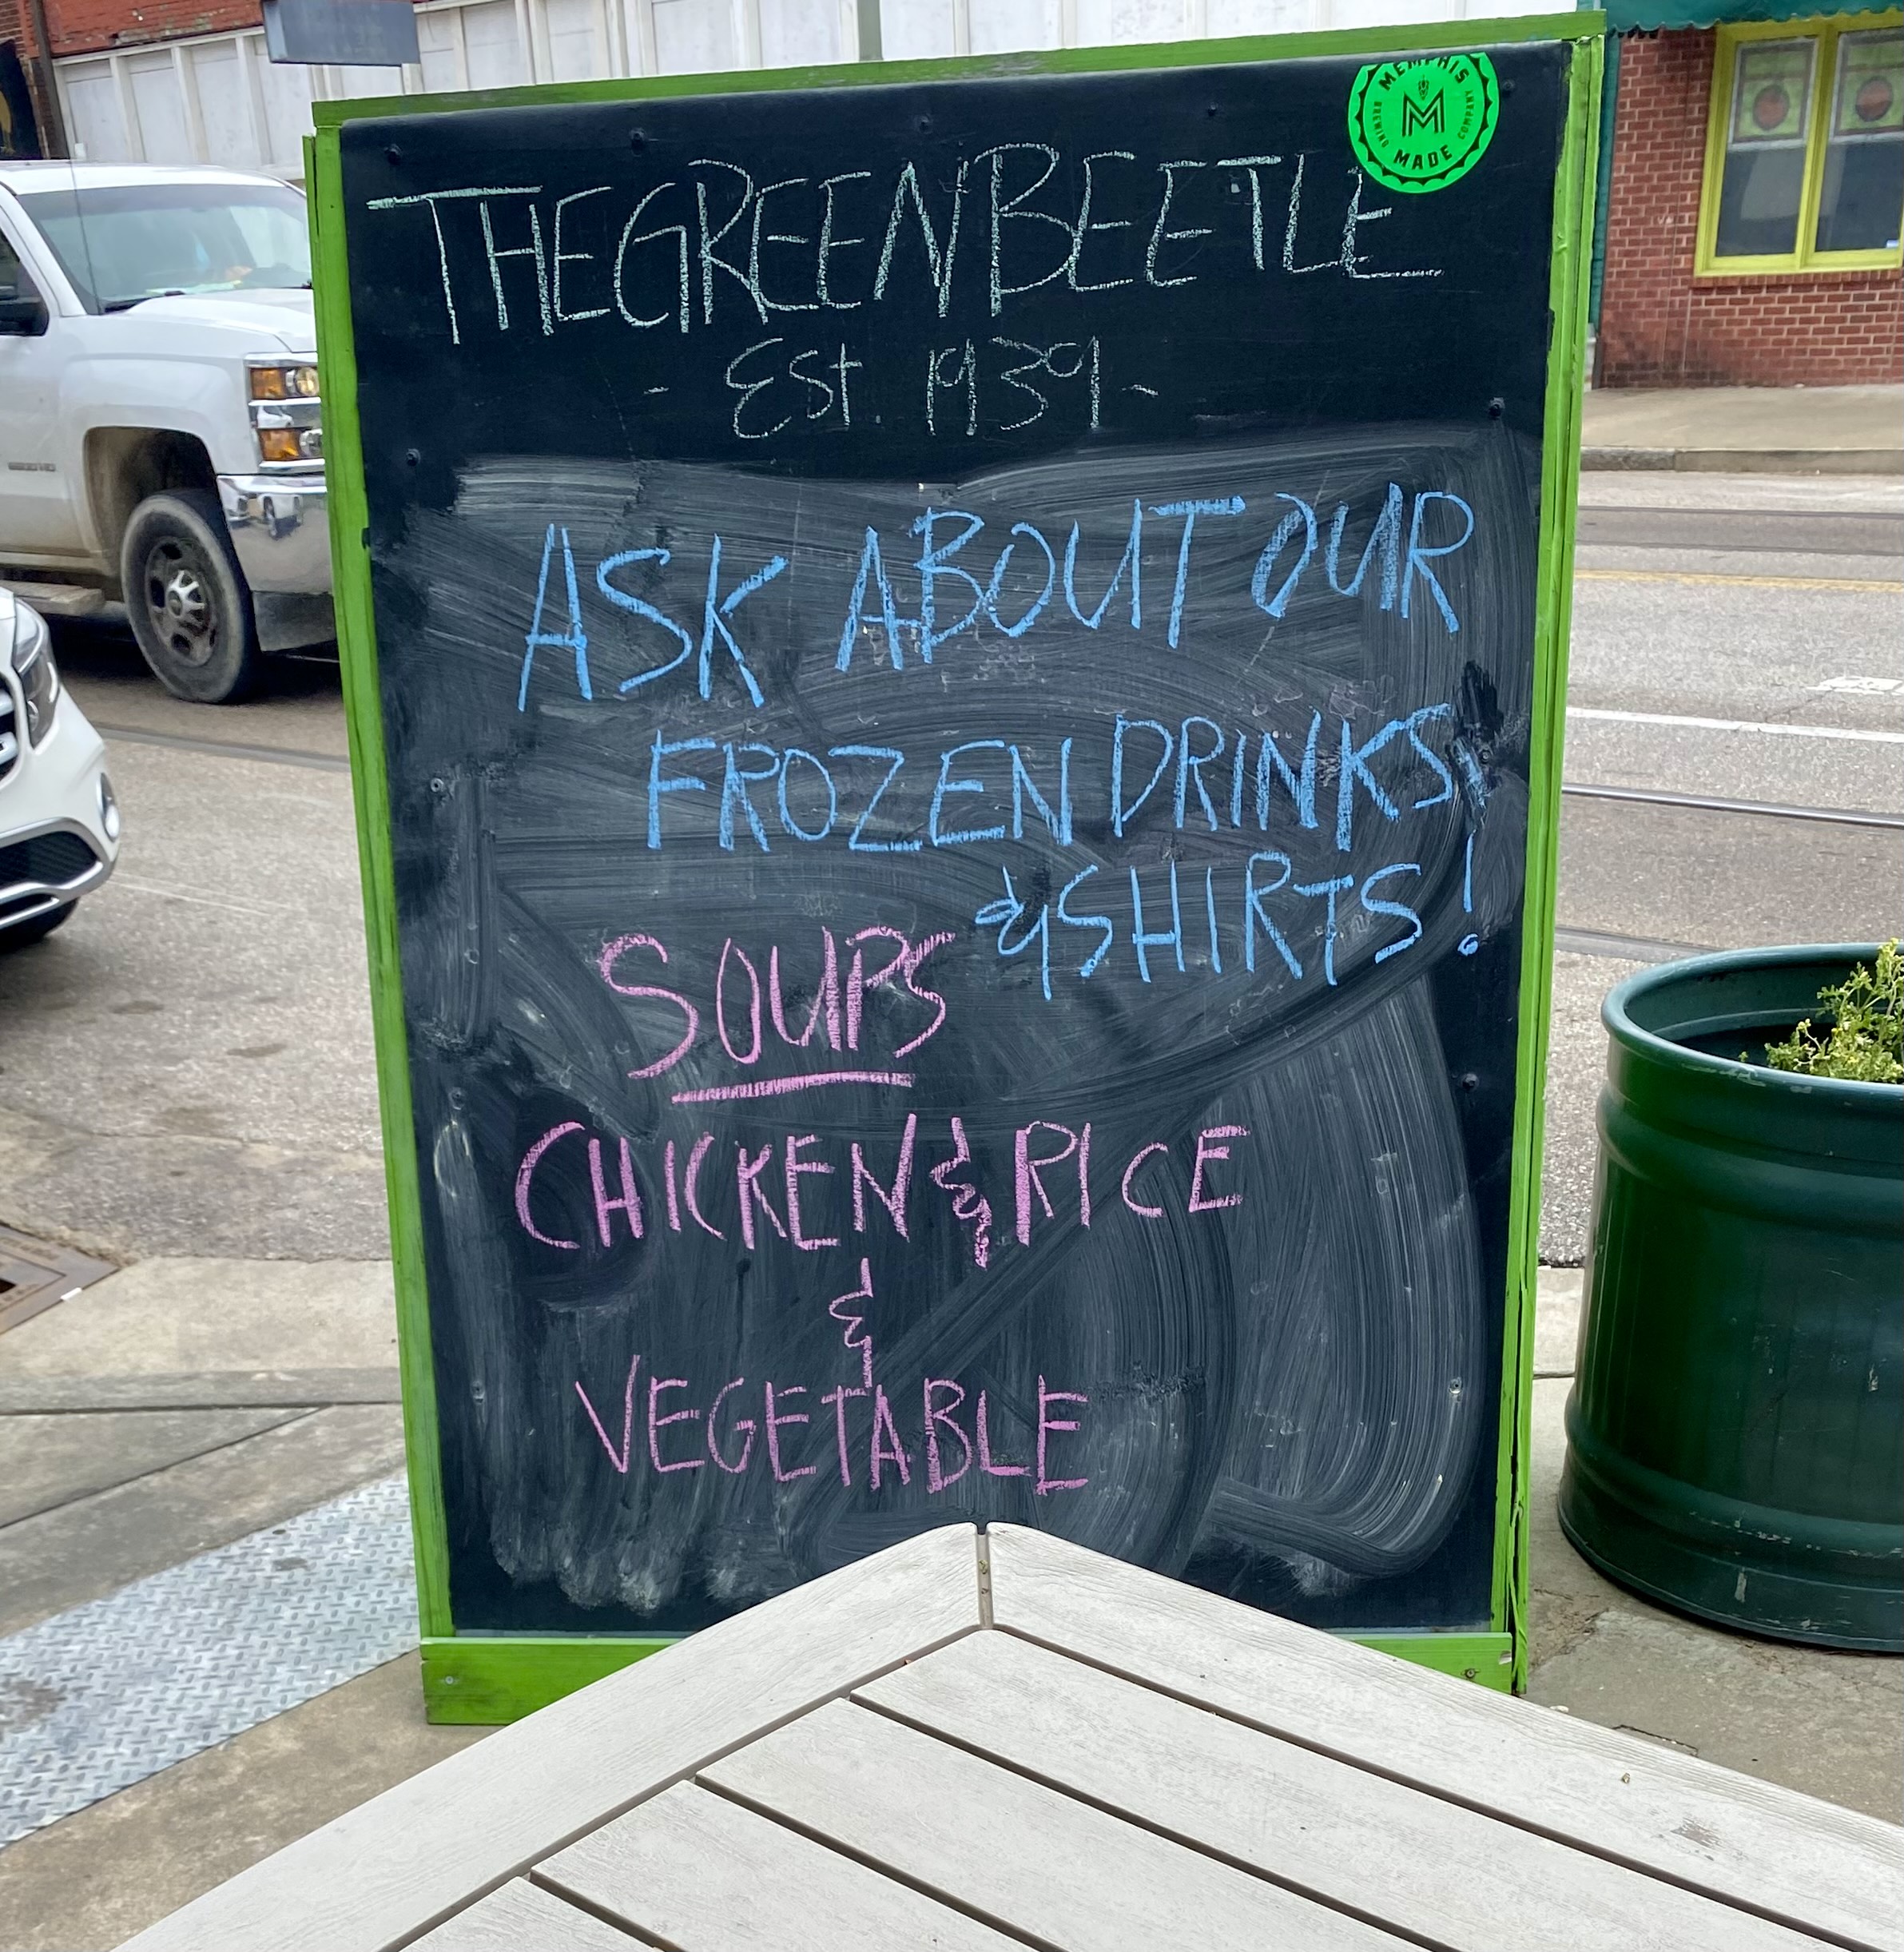 MEMPHIS
BREWING COMPANY
M
MADE
THE GREEN BEETLE
- Est. 1939 -
ASK ABOUT OUR
FROZEN DRINKS
& SHIRTS!
SOUPS
CHICKEN & RICE
&
VEGETABLE